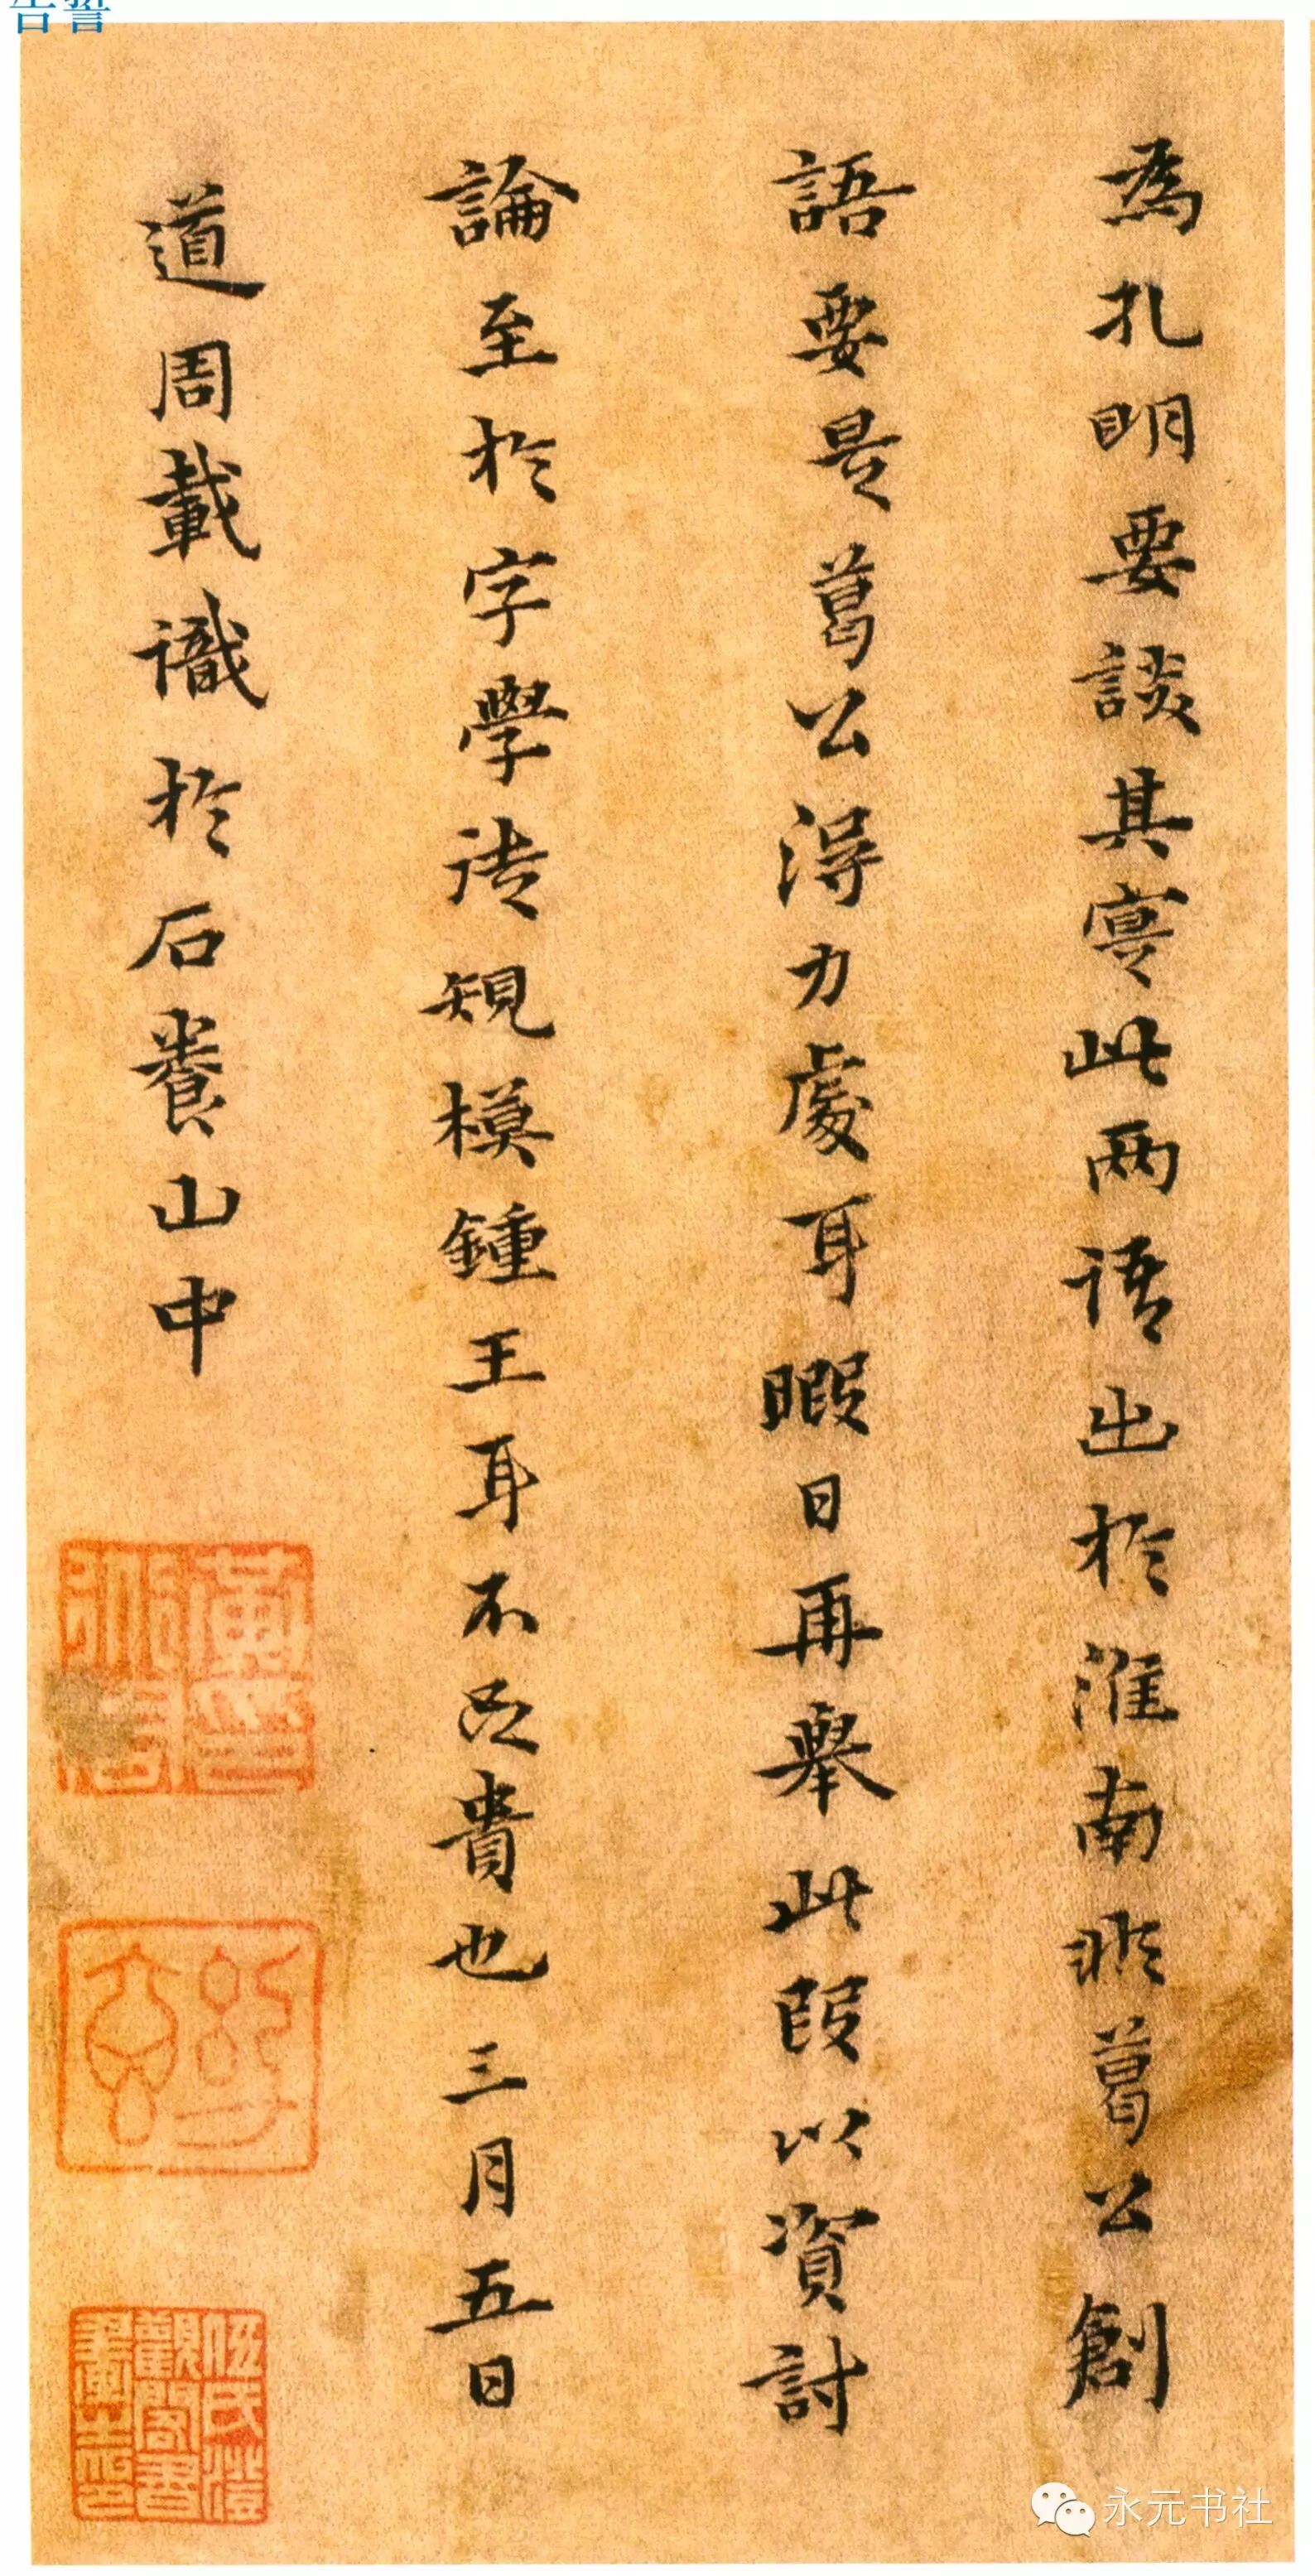 告誓
為孔明要談其寔此两語出於淮南非葛公創
語要是葛公得力處耳暇日再舉此段以資討
論至於字學法規模鍾王耳不足貴也三月五日
道周載識於石養山中
永元书社